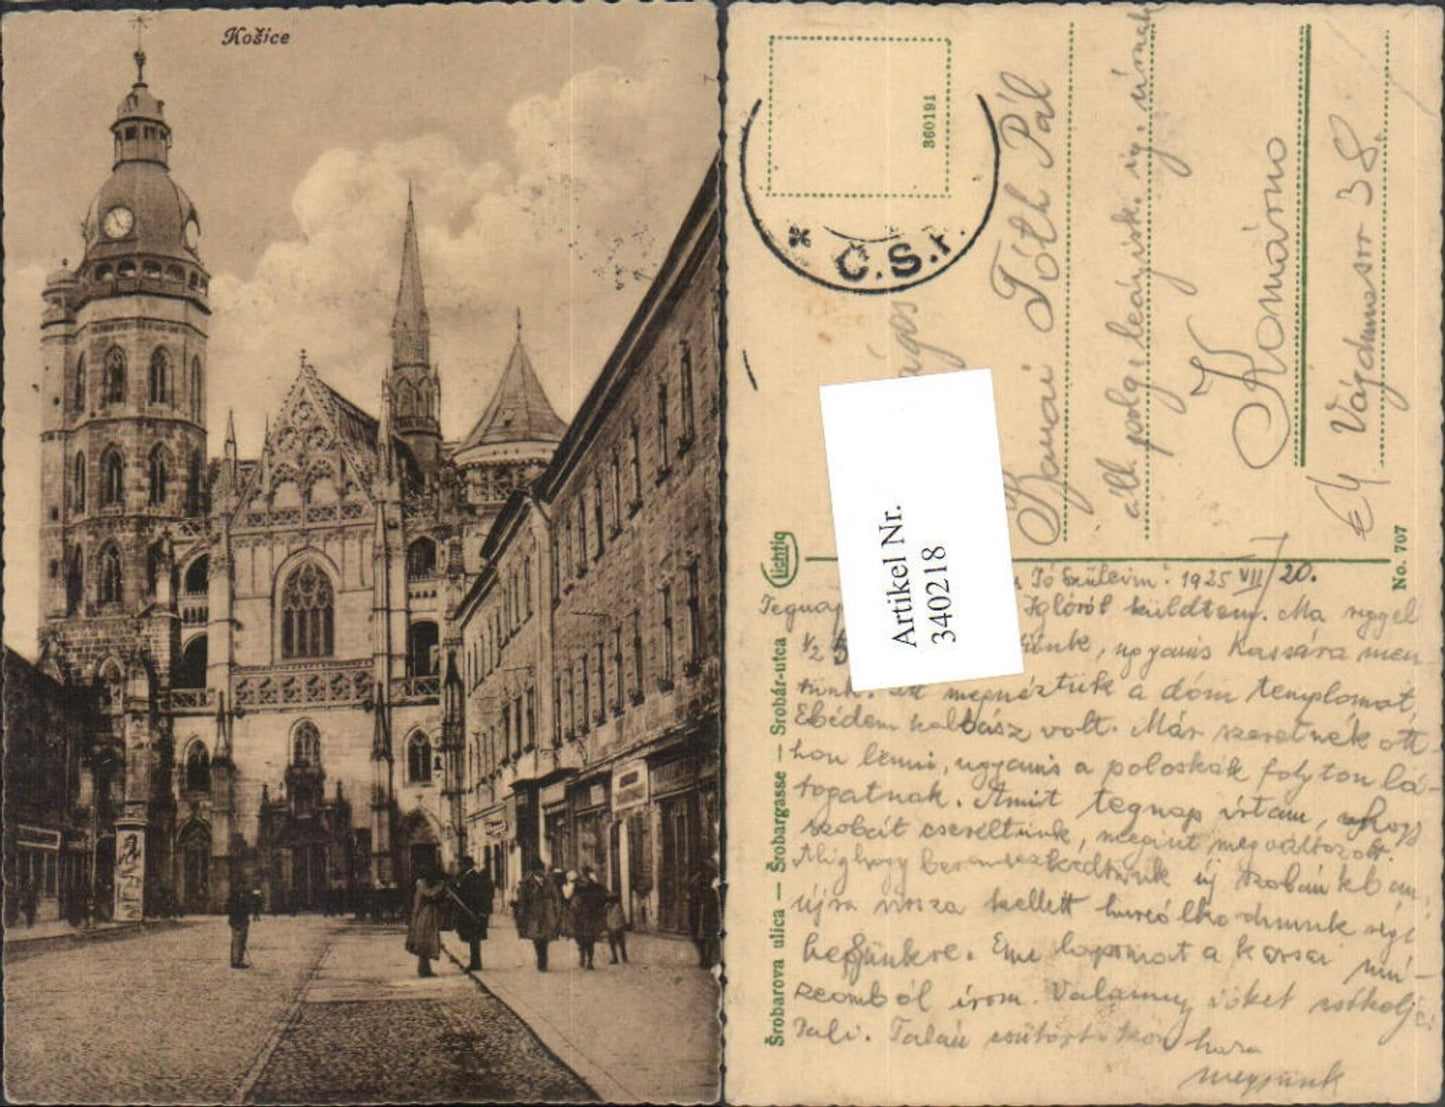 Košice
360191
C.S.r.
Banai Tóth Pál
áll. polg. leányisk. ig. úrnak
Komárno
Vágdunasor 38.
Lichtig
No. 707
Šrobarova ulica — Šrobargasse — Srobár-utca
Artikel Nr.
340218
Jó Szüleim! 1925 VII/20.
Tegnap Iglóról küldtem. Ma reggel
1/2 5 ugyanis Kassára men-
tünk. Itt megnéztük a dóm templomot,
Ebédem kolbász volt. Már szeretnék ott-
hon lenni, ugyanis a poloskák folyton lá-
togatnak. Amit tegnap írtam, hogy
szobát cseréltünk, megint megváltozott.
Alighogy berendezkedtünk új szobánkban,
újra vissza kellett hurcólkodnunk régi
helyünkre. Eme lapomat a kassai mú-
zeomból írom. Valamennyiöket csókolja
Pali. Talán csütörtökön haza
megyünk